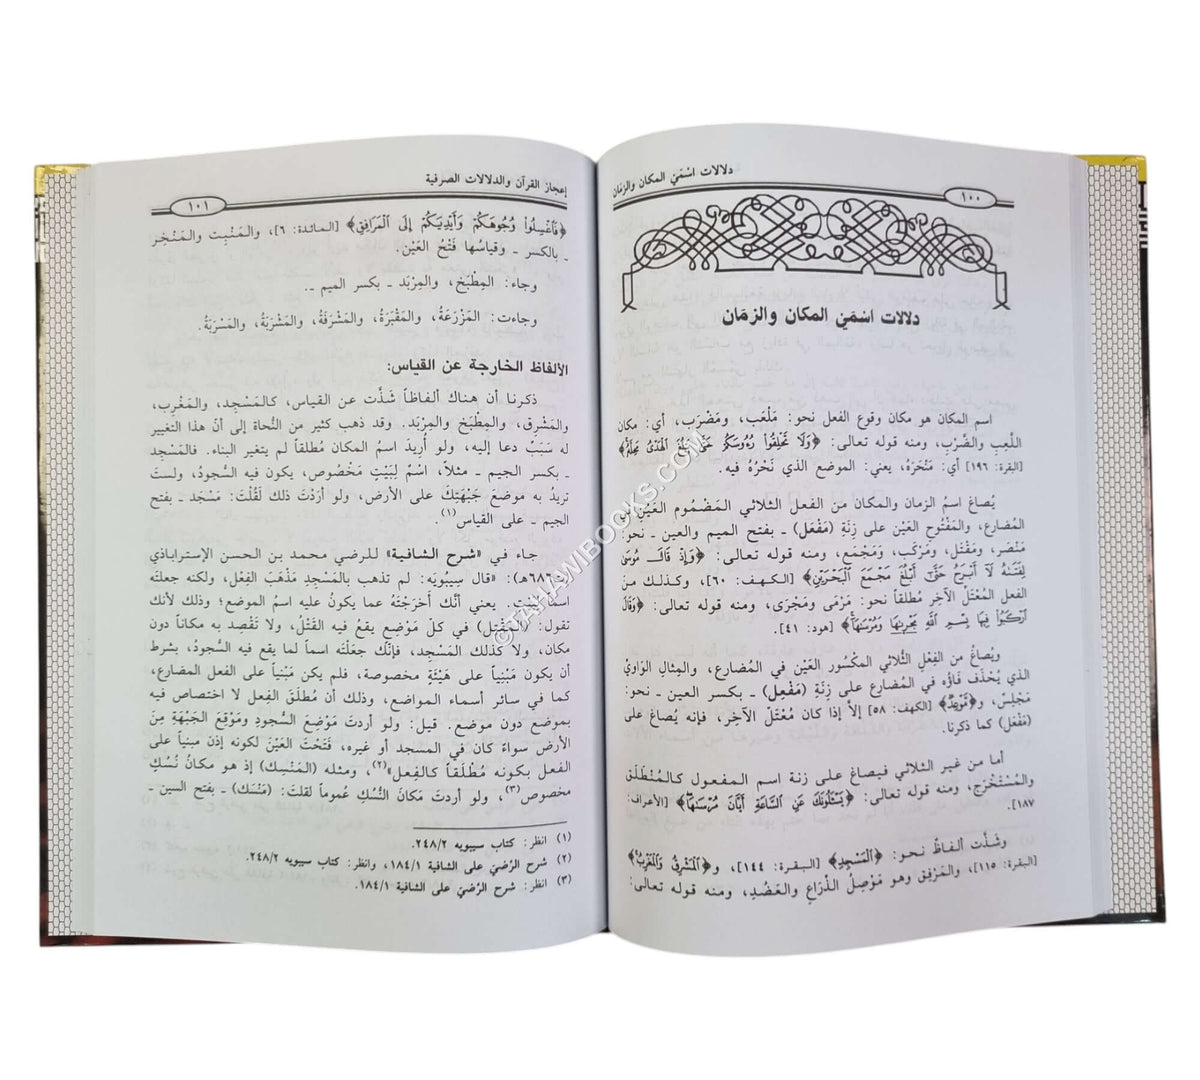 دلالات اسْمَيْ المكان والزمَان
١٠٠
دلالات اسْمَيْ المكان والزمَان
اسم المكان هو مكان وقوع الفعل نحو: مَلْعَب، ومَضْرَب، أي: مكان
اللَّعِب والضَّرْب، ومنه قوله تعالى: ﴿وَلَا تَحْلِقُوا۟ رُءُوسَكُمْ حَتَّىٰ يَبْلُغَ ٱلْهَدْىُ مَحِلَّهُۥ﴾
[البقرة: ١٩٦] أي: مَنْحَرَهُ، يعني: الموضع الذي نَحْرُهُ فيه.
يُصاغ اسمُ الزمان والمكان من الفعل الثلاثي المَضْمُوم العَيْن في
المُضارع، والمَفْتُوحِ العَيْن على زِنَة (مَفْعَل) ـ بفتح الميم والعين ـ نحو:
مَنْصَر، ومَقْتَل، ومَرْكَب، ومَجْمَع، ومنه قوله تعالى: ﴿وَإِذْ قَالَ مُوسَىٰ
لِفَتَىٰهُ لَآ أَبْرَحُ حَتَّىٰٓ أَبْلُغَ مَجْمَعَ ٱلْبَحْرَيْنِ﴾ [الكهف: ٦٠]، وكذلك منَ
الفعل المُعْتَل الآخِر مُطلقاً نحو: مَرْمَى ومَجْرَى، ومنه قوله تعالى: ﴿وَقَالَ
ٱرْكَبُوا۟ فِيهَا بِسْمِ ٱللَّهِ مَجْر۪ىٰهَا وَمُرْسَىٰهَآ﴾ [هود: ٤١].
ويُصاغُ من الفِعْلِ الثُّلاثي المَكْسُور العَيْن في المُضارع، والمِثالِ الوَاوِيِّ
الذي يُحْذَف فَاؤُه في المُضارع على زِنَةِ (مَفْعِل) ـ بكسر العين ـ نحو:
مَجْلِس، و﴿مَّوْعِدٌ﴾ [الكهف: ٥٨] إلاَّ إذا كان مُعْتَلّ الآخِر، فإنه يُصاغ على
(مَفْعَل) كما ذكرنا.
أما من غير الثلاثي فيصاغ على زنة اسم المفعول كالمُنْطَلَق
والمُسْتَخْرَج، ومنه قوله تعالى: ﴿يَسْـَٔلُونَكَ عَنِ ٱلسَّاعَةِ أَيَّانَ مُرْسَىٰهَا﴾ [الأعراف:
١٨٧].
وشَذَّت ألفاظٌ نحو: ﴿ٱلْمَسْجِدِ﴾ [البقرة: ١٤٤]، و﴿ٱلْمَشْرِقُ وَٱلْمَغْرِبُ﴾
[البقرة: ١١٥]، والمَرْفِق وهو مَوْصِلُ الذِّرَاع والعَضُد، ومنه قوله تعالى:
إعجاز القرآن والدلالات الصرفية
١٠١
﴿فَٱغْسِلُوا۟ وُجُوهَكُمْ وَأَيْدِيَكُمْ إِلَى ٱلْمَرَافِقِ﴾ [المائدة: ٦]، والمَنْبِت والمَنْخِر
ـ بالكسر ـ وقياسُها فَتْحُ العَيْن.
وجاء: المِطْبَخ، والمِرْبَد ـ بكسر الميم ـ.
وجاءت: المَزْرَعَةُ، والمَقْبَرَةُ، والمَشْرَقَةُ، والمَشْرَبَةُ، والمَسْرَبَةُ.
الألفاظ الخارجة عن القياس:
ذكرنا أن هناك ألفاظاً شَذَّت عن القياس، كالمَسْجِد، والمَغْرِب،
والمَشْرِق، والمِطْبَخ والمِرْبَد. وقد ذهب كثير من النُّحاة إلى أنَّ هذا التغيير
له سَبَبٌ دعا إليه، ولو أُريدَ اسمُ المكان مُطلقاً لم يتغير البناء. فالمَسْجِد
ـ بكسر الجيم ـ مثلاً، اسْمٌ لِبَيْتٍ مَخْصُوص، يكون فيه السجُودُ، ولستَ
تريدُ به موضعَ جَبْهَتِكَ على الأرض، ولو أرَدْتَ ذلك لَقُلْتَ: مَسْجَد ـ بفتح
الجيم ـ على القياس(١).
جاء في «شرح الشافية» للرضي محمد بن الحسن الإستراباذي
(٦٨٦هـ): «قال سِيبُويَه: لم تذهب بالمَسْجِد مَذْهَبَ الفِعْل، ولكنه جعلتَه
اسماً لبيْت. يعني أنَّك أخرَجْتَهُ عما يكونُ عليه اسمُ الموضع؛ وذلك لأنك
تقول: (المَقْتِل) في كلّ مَوْضِعٍ يقعُ فيه القَتْلُ، ولا تَقْصِد به مكاناً دون
مكان، ولا كذلك المَسْجِد، فإنَّك جعَلْتَه اسماً لما يقع فيه السجُودُ، بشرط
أن يكون مَبْنِياً على هَيْئَةٍ مخصوصة، فلم يكن مَبْنِياً على الفعل المضارع،
كما في سائر أسماء المواضع، وذلك أن مُطلَقَ الفِعل لا اختصاص فيه
بموضع دون موضع. قيل: ولو أردتَ مَوْضِعَ السجُودِ ومَوْقِعَ الجَبْهَةِ مِنَ
الأرض سواءً كان في المسجد أو غيره، فَتَحْتَ العَيْنَ لكونه إذن مبنياً على
الفعل بكونه مُطْلَقاً كالفِعل»(٢)، ومثله (المَنْسِك) إذ هو مكانُ نُسُكٍ
مخصوص(٣)، ولو أردتَ مَكانَ النُّسُكِ عُموماً لقلتَ: (مَنْسَك) ـ بفتح السين ـ
(١) انظر: كتاب سيبويه ٢٤٨/٢.
(٢) شرح الرَّضيّ على الشافية ١٨٤/١، وانظر: كتاب سيبويه ٢٤٨/٢.
(٣) انظر: شرح الرَّضيّ على الشافية ١٨٤/١.
©TAHAWIBOOKS.COM